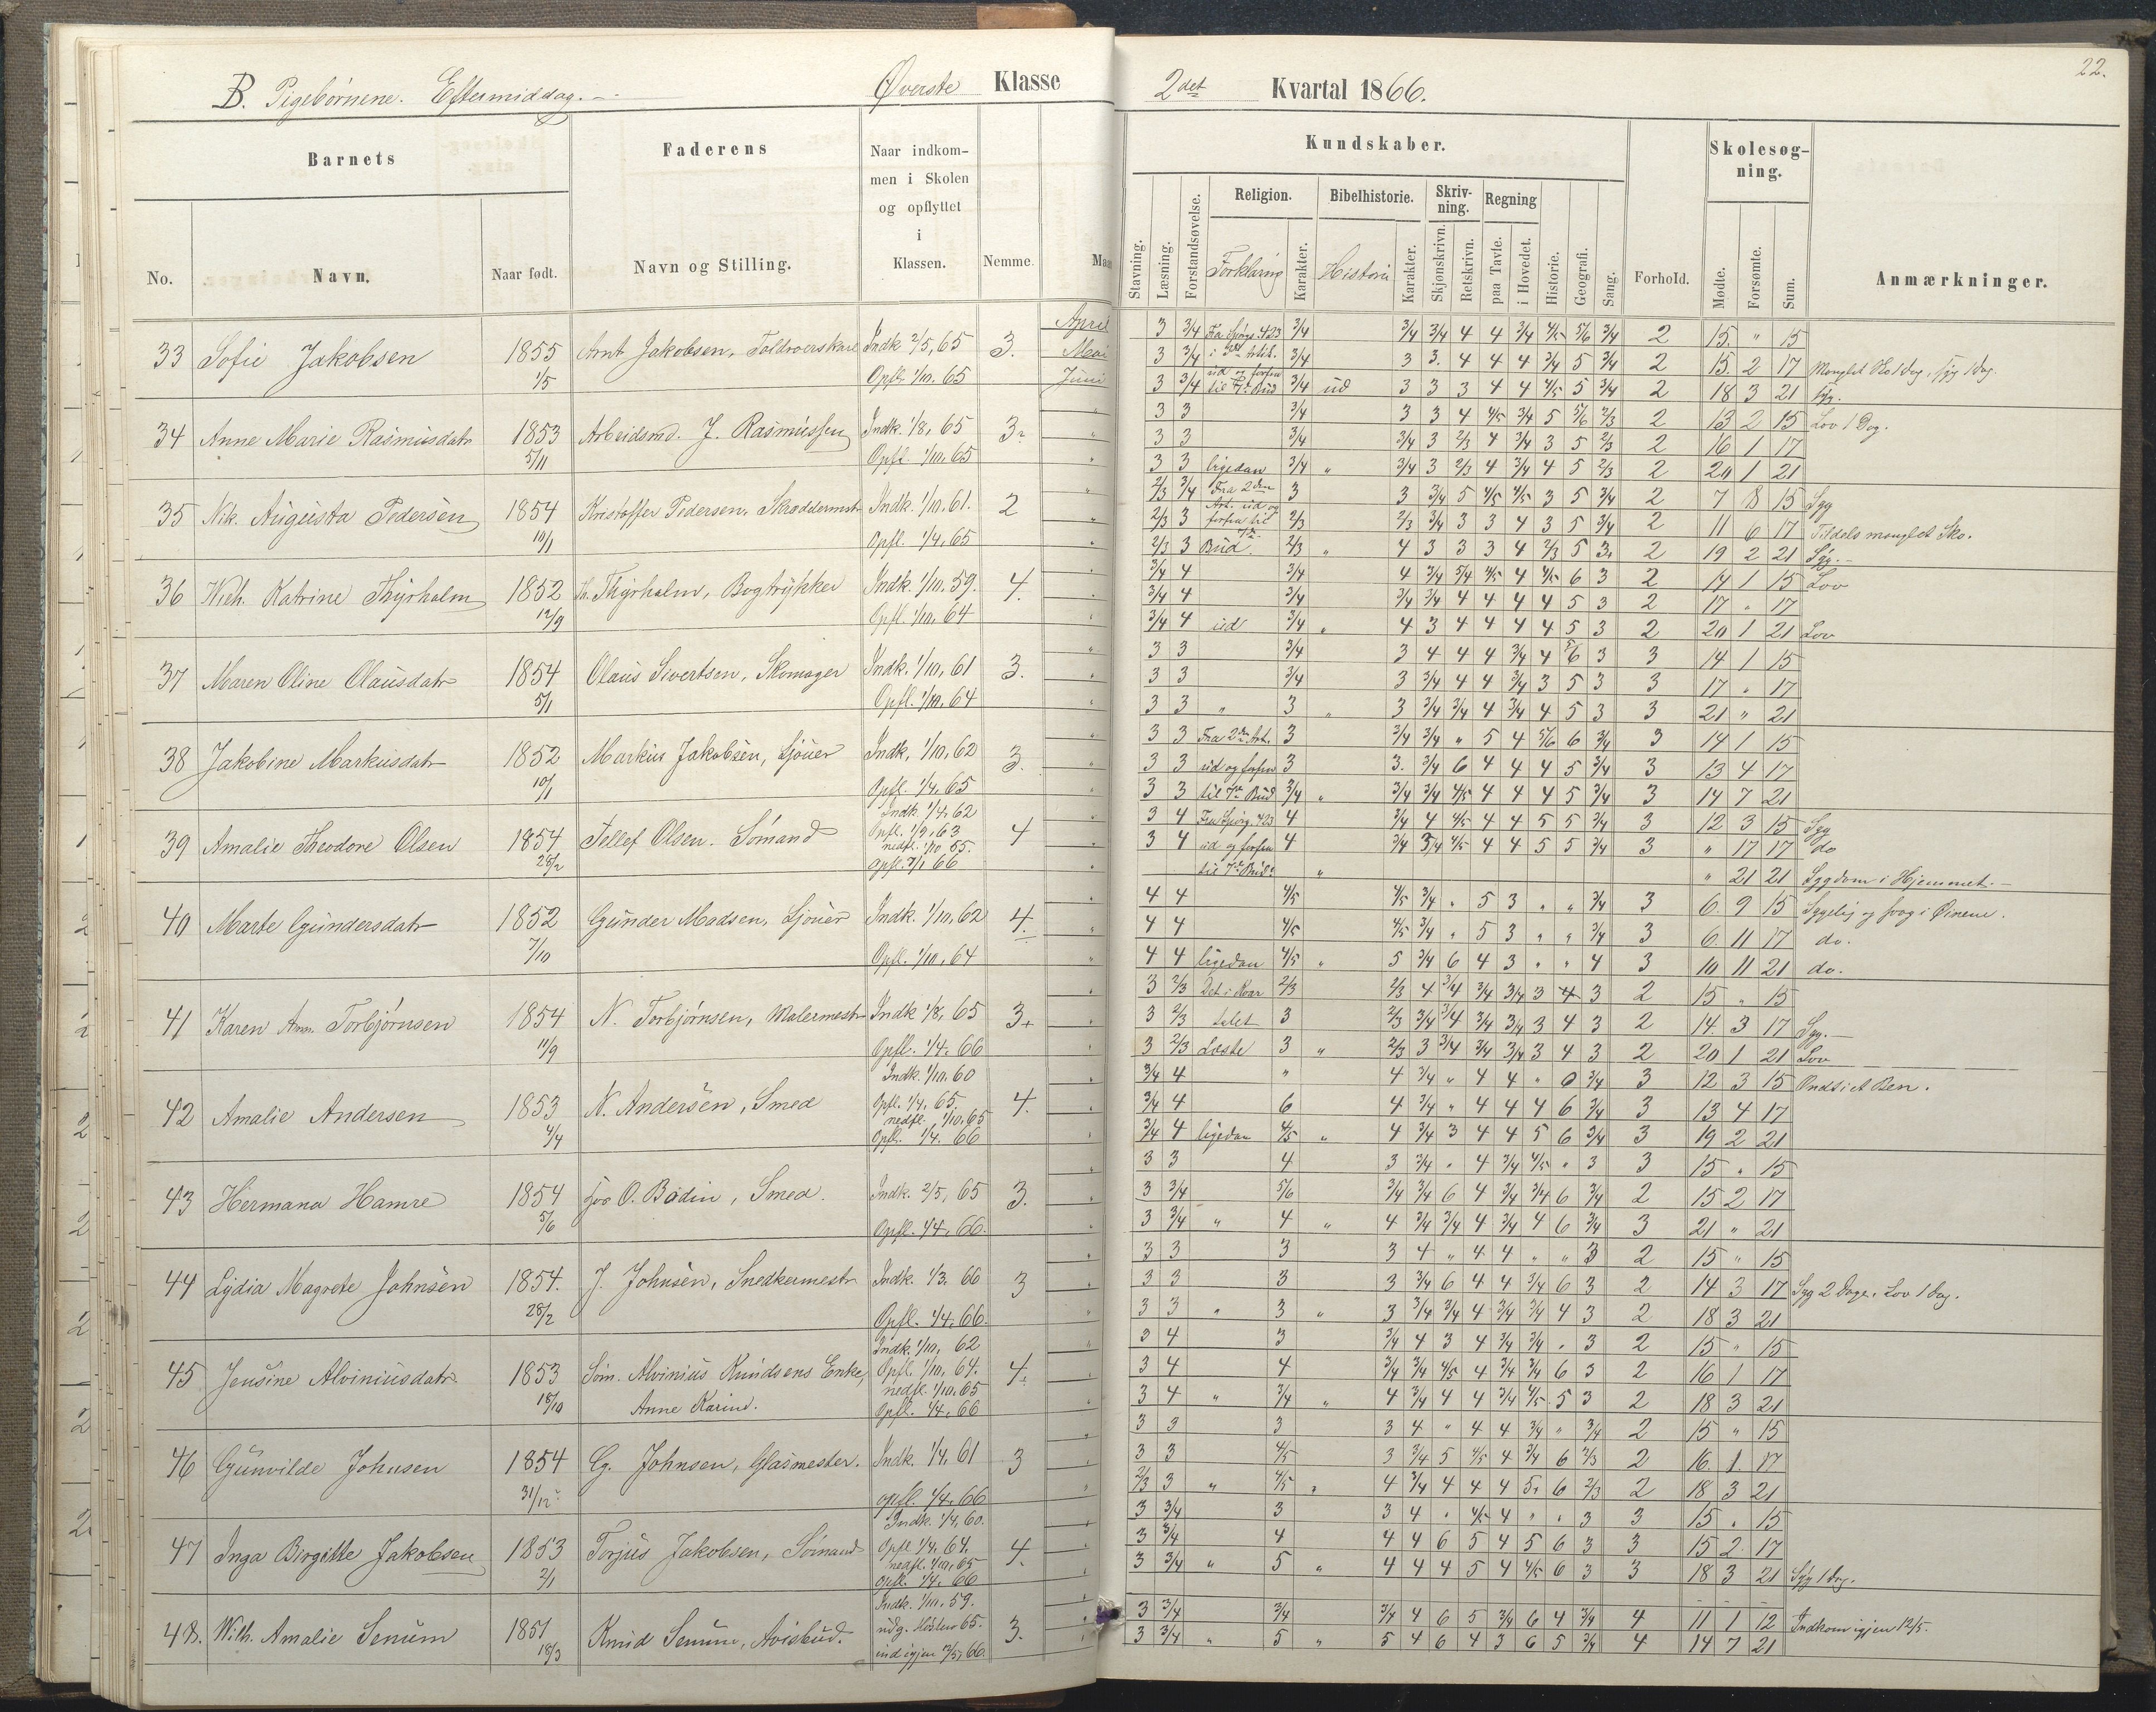 B. Pigebørnene. Eftermiddag. Øverste Klasse
2det Kvartal 1866.
22.
Barnets
Faderens
Naar indkom-
men i Skolen
og opflyttet
i
Klassen.
Nemme.
No.
Navn.
Naar født.
Navn og Stilling.
Kundskaber.
Skolesøg-
ning.
Religion.
Bibelhistorie.
Skriv-
ning.
Regning
Stavning.
Læsning.
Forstandsøvelse.
Forklaring
Karakter.
Historie
Karakter.
Skjønskrivn.
Retskrivn.
paa Tavle.
i Hovedet.
Historie.
Geografi.
Sang.
Forhold.
Møde.
Forsømte.
Sum.
Anmærkninger.
April
Mai
Juni
33 Sofie Jakobsen 1855 1/5 Arnt Jakobsen, Toldroerskarl Indk 2/5, 65 Opfl. 1/10. 65 3.
3 3/4 Fra Spørg. 423 3/4 3/4 3/4 4 4 3/4 4/5 5/6 3/4 2 15. " 15
3 3/4 3/4 3 3. 4 4 4 3/4 5 3/4 2 15. 2 17 Manglet Sko 1 Dag, syg 1 Dag.
3 3/4 til 7de Bud 3/4 ud 3 3 3 4 4 4/5 5 3/4 2 18 3 21 Syg.
34 Anne Marie Rasmusdatr 1853 5/11 Arbeidsmd. J. Rasmussen Indk. 1/8, 65 Opfl. 1/10, 65 3.
3 3 3/4 3 3 4 4/5 3/4 5 5/6 2/3 2 13 2 15 Lov 1 Dag.
3 3 3/4 3/4 3 2/3 4 3/4 3 5 2/3 2 16 1 17
3 3 ligedan 3/4 " 3/4 3 2/3 4 3/4 4 5 2/3 2 20 1 21
35 Nik. Augusta Pedersen 1854 10/1 Kristoffer Pedersen, Skræddermstr Indk. 1/10, 61. Opfl. 1/4, 65 2
2/3 3/4 Fra 2den 3 3 3/4 5 4/5 4/5 3 5 3/4 2 7 8 15 Syg
2/3 3 Art. ud og forfra til 2/3 2/3 3/4 3 3 4 3 5 3/4 2 11 6 17 Tildels manglet Sko.
2/3 3 Bud. 2/3 " 4 3 3 3 4 2/3 5 3. 2 19 2 21 Syg.
36 Wilh. Katrine Thyrholm 1852 12/9 Th. Thyrholm, Bogtrykker Indk. 1/10, 59. Opfl. 1/10, 64 4.
3/4 4 3/4 4 3/4 5/4 4/5 4 4/5 6 3 2 14 1 15 Lov
3/4 4 3/4 3/4 3/4 4 4 4 4 5 3 2 17 " 17
3/4 4 ud 3/4 " 4 3 4 4 4 4 5 3 2 20 1 21 Lov
37 Maren Oline Olausdatr 1854 5/1 Olaus Sivertsen, Skomager Indk. 1/10, 61 Opfl. 1/10, 64 3.
3 3 3/4 3 4 4 4 3/4 4 5/6 3 3 14 1 15
3 3 3/4 3 3/4 4 4 3/4 3 5 3 3 17 " 17
3 3 " 3 " 3 3/4 3/4 4 3/4 4 5 3 3 21 " 21
38 Jakobine Markusdatr 1852 10/1 Markus Jakobsen, Sjouer Indk. 1/10, 62 Opfl. 1/4, 65 3.
3 3 Fra 2den Art. 3 3/4 3/4 " 5 4 5/6 6 3/4 3 14 1 15
3 3 ud og forfra 3 3. 3/4 6 4 4 4 5 3/4 3 13 4 17
3 3 til 7de Bud 3/4 " 3/4 3/4 4/5 4 4 4 5 3/4 3 14 7 21
39 Amalie Theodore Olsen 1854 28/2 Tellef Olsen. Sømand Indk. 1/4, 62 Opfl. 1/9, 63 nedfl. 1/10 65. Opfl. 2/1 66 4
3 4 Fra Spørg. 423 4 3/4 4 4/5 4 4 5 5 3/4 3 12 3 15 Syg
3 4 ud og forfra 4 3/4 3/4 4/5 4 4 5 5 3/4 3 " 17 17 do
til 7de Bud. " " 21 21 Sygdom i Hjemmet.
40 Marte Gundersdatr 1852 7/10 Gunder Madsen, Sjouer Indk. 1/10, 62 Opfl. 1/10, 64 4.
4 4 4/5 4/5 3/4 " 5 3 " " 3/4 3 6. 9 15 Sygelig og svag i Øinene.
4 4 4/5 4/5 3/4 " 5 3 " " 3/4 3 6. 11 17 do.
4 4 ligedan 4/5 " 5 3/4 6 4 3 " " 4 3 10 11 21 do.
41 Karen Ann. Torbjørnsen 1854 11/9 N. Torbjørnsen, Malermestr Indk 1/8, 65 Opfl. 1/4. 66 3.
3 2/3 Det i Kvar 2/3 2/3 4 3/4 3/4 3/4 3 4 3 2 15 " 15
3 2/3 talet 3 2/3 3/4 3/4 3/4 3/4 3 4 3 2 14. 3 17 Syg.
3 2/3 Læste 3 " 2/3 3 3/4 3/4 3/4 3 4 3 2 20 1 21 Lov
42 Amalie Andersen 1853 4/4 N. Andersen, Smed Indk. 1/10. 60 Opfl. 1/4, 65. nedfl. 1/10, 65 Opfl. 1/4. 66 4.
3/4 4 " 4 3/4 " 4 4 " 0 3/4 3 12 3 15 Ondt i et Ben.
3/4 4 6 4 3/4 " 4 4 4 6 3/4 3 13 4 17
3/4 4 ligedan 4/5 " 4 3/4 3 4 4 5 6 3/4 3 19 2 21
43 Hermana Hamre 1854 5/6 hos O. Bødin, Smed. Indk. 2/5, 65 Opfl. 1/4, 66. 3.
3 3 4 3 3/4 " 4 3/4 4/5 " 3 3 15 " 15
3 3/4 5/6 3/4 3/4 6 4 3/4 3/4 6 3/4 2 15 2 17
3 3/4 " 4 " 4 3/4 3/4 4 3/4 4 6 3/4 3 21 " 21
44 Lydia Magrete Johnsen 1854. 28/2 J. Johnsen, Snedkermestr Indk. 1/3. 66 Opfl. 1/4, 66. 3
3 3 3 3 4 " 4 4 " " 3 2 15 " 15
3 3 3 3 3/4 6 4 4 3/4 6 3 2 14 3 17 Syg 2 Dage. Lov 1 Dag.
3 3 " 3 " 3 3/4 3/4 4 3/4 3/4 4 3 2 18 3 21
45 Jensine Alviniusdatr 1853 18/10 Søm. Alvinius Knudsens Enke, Anne Karine. Indk. 1/10, 62 Opfl. 1/10, 64. nedfl. 1/10, 65 Opfl. 1/4, 66 4.
3 4 3 3/4 4 3 4 3/4 3/4 " 3 2 15 " 15
3 4 4 3/4 3/4 4/5 4 3/4 3/4 6 3 2 16 1 17
3 4 " 3/4 " 4 3/4 4 4 3/4 4/5 5 3 2 18 3 21
46 Gunvilde Johnsen 1854 31/12 G. Johnsen, Glasmester. Indk. 1/4, 61 opfl. 1/4, 66 3
3 3 3 3 4 " 4 4 3/4 " 3/4 2 15 " 15
3 3 4/5 3 3/4 5 4/5 4 3/4 6 2/3 2 16. 1 17
2/3 3 " 4/5 " 4 3/4 4 4 4 5 6 2/3 2 18 3 21
47 Inga Birgitte Jakobsen 1853 2/1 Torjus Jakobsen, Sømand Indk. 1/4, 60. Opfl 1/4, 64. nedfl. 1/10, 65 opfl. 1/4. 66 4.
3 3/4 3 3 4 " 4/5 4 " " 3 3 15 " 15
3 3/4 4 4 4 6 5 4 5 6 3 3 15 2 17
3 3/4 " 5 " 4 4 4 5 4 4/5 6 3 3 18 3 21 Syg 1 Dag.
48. Wilh. Amalie Senum 1851 18/3 Knud Senum, Avisbud. Indk. 1/10, 59. udg. Hösten 65. ind igjen 12/5, 66. 3.
3 3/4 3/4 3/4 4 6 5 3/4 6 4 3/4 4 11 1 12 Indkom igjen 12/5.
3 3/4 " 5 " 5 4 6 4 3 6 5 3/4 4 14 7 21